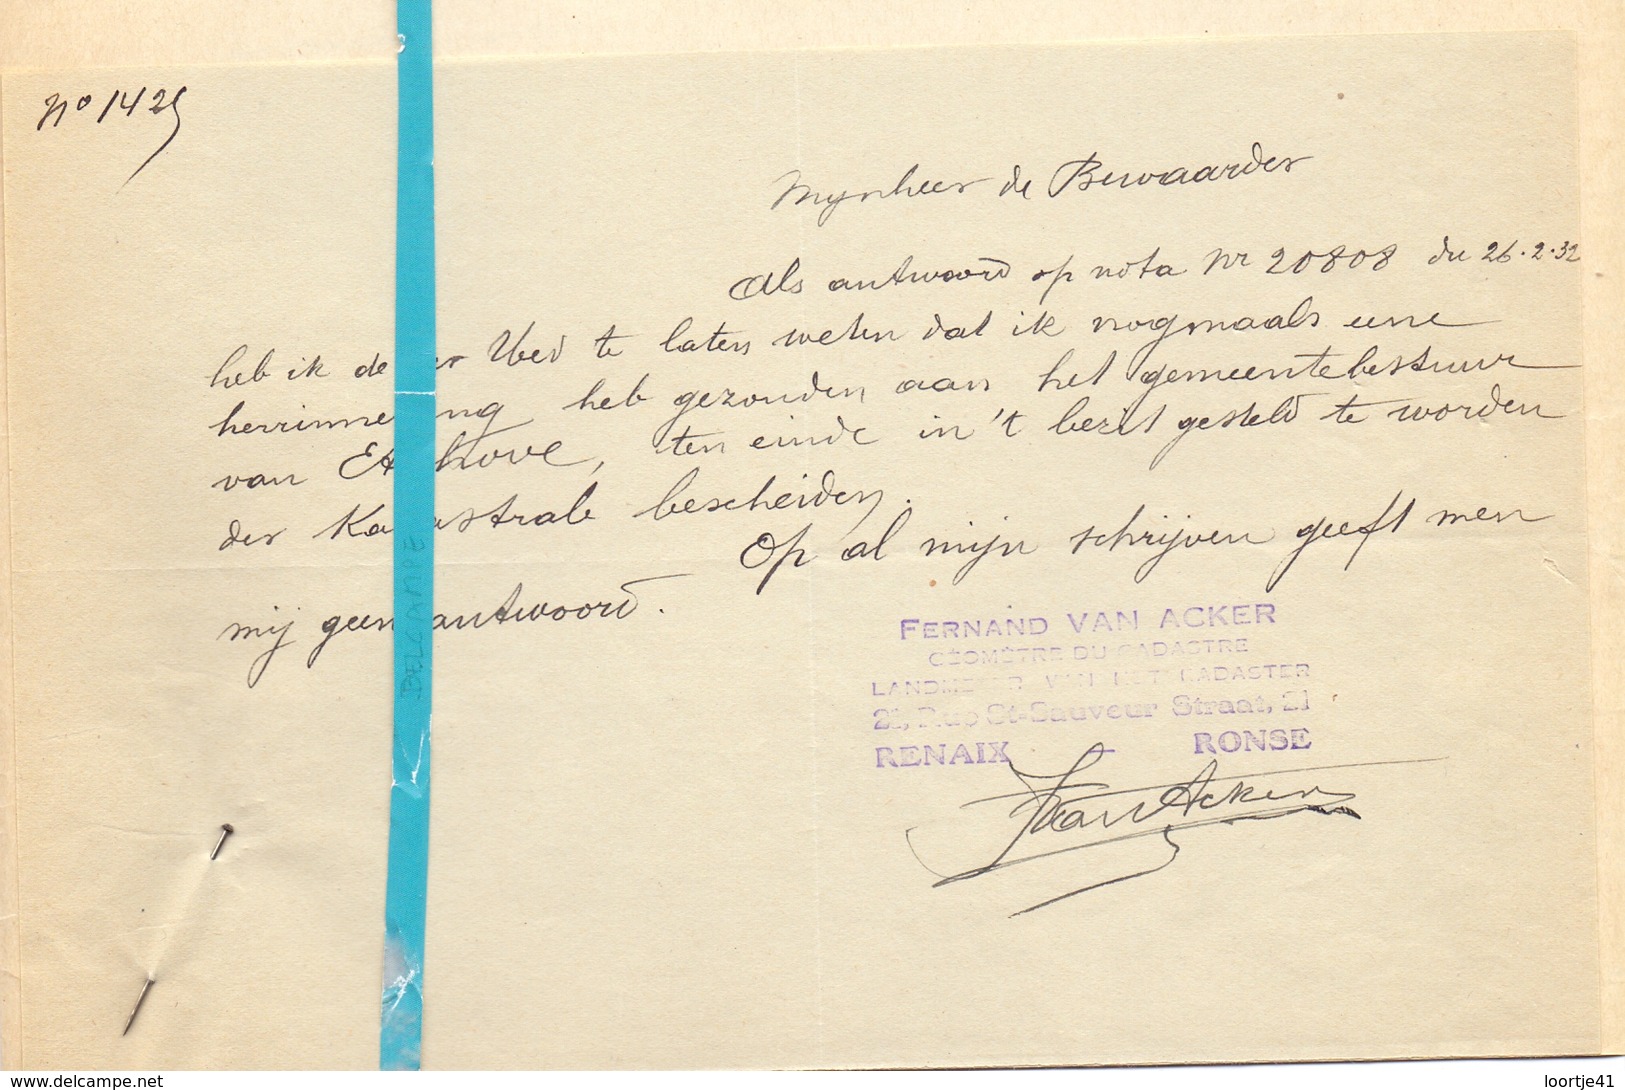 No 1425
Mynheer de Bewaarder
Als antwoord op nota Nr 20808 du 26.2.32
heb ik de er Ued te laten weten dat ik nogmaals eene
herrinne ng heb gezonden aan het gemeentebestuur
van Et hove, ten einde in 't bezit gesteld te worden
der Ka astrale bescheiden.
Op al mijn schrijven geeft men
mij geen antwoord.
FERNAND VAN ACKER
GÉOMÈTRE DU CADASTRE
LANDMETER VAN HET KADASTER
21, Rue St-Sauveur Straat, 21
RENAIX - RONSE
VanAcker
www.delcampe.net
loortje41